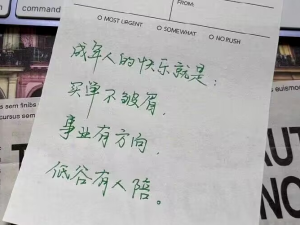 command
FROM:
○ MOST URGENT ○ SOMEWHAT ○ NO RUSH
成年人的快乐就是:
买单不皱眉.
事业有方向.
低谷有人陪。
sem finibus
cursus sem
AUT
NO